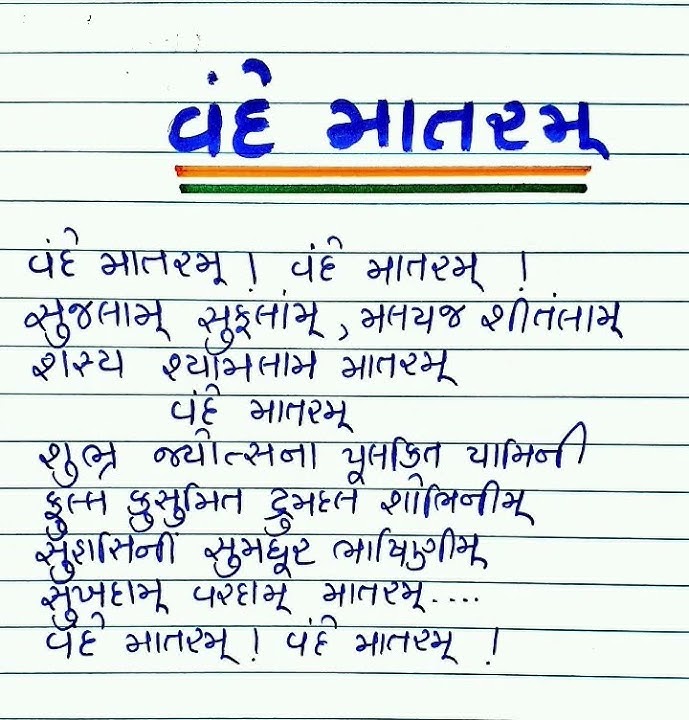 વંદે માતરમ્
વંદે માતરમ્ ! વંદે માતરમ્ !
સુજલામ્ સુફલામ્ , મલયજ શીતલામ્
શસ્ય શ્યામલામ માતરમ્
વંદે માતરમ્
શુભ્ર જ્યોત્સના પૂલકિત યામિની
ફુલ્લ કુસુમિત દ્રુમદલ શોભિનીમ્
સુહાસિનીં સુમધૂર ભાષિણીમ્
સુખદામ્ વરદામ્ માતરમ્....
વંદે માતરમ્ ! વંદે માતરમ્ !